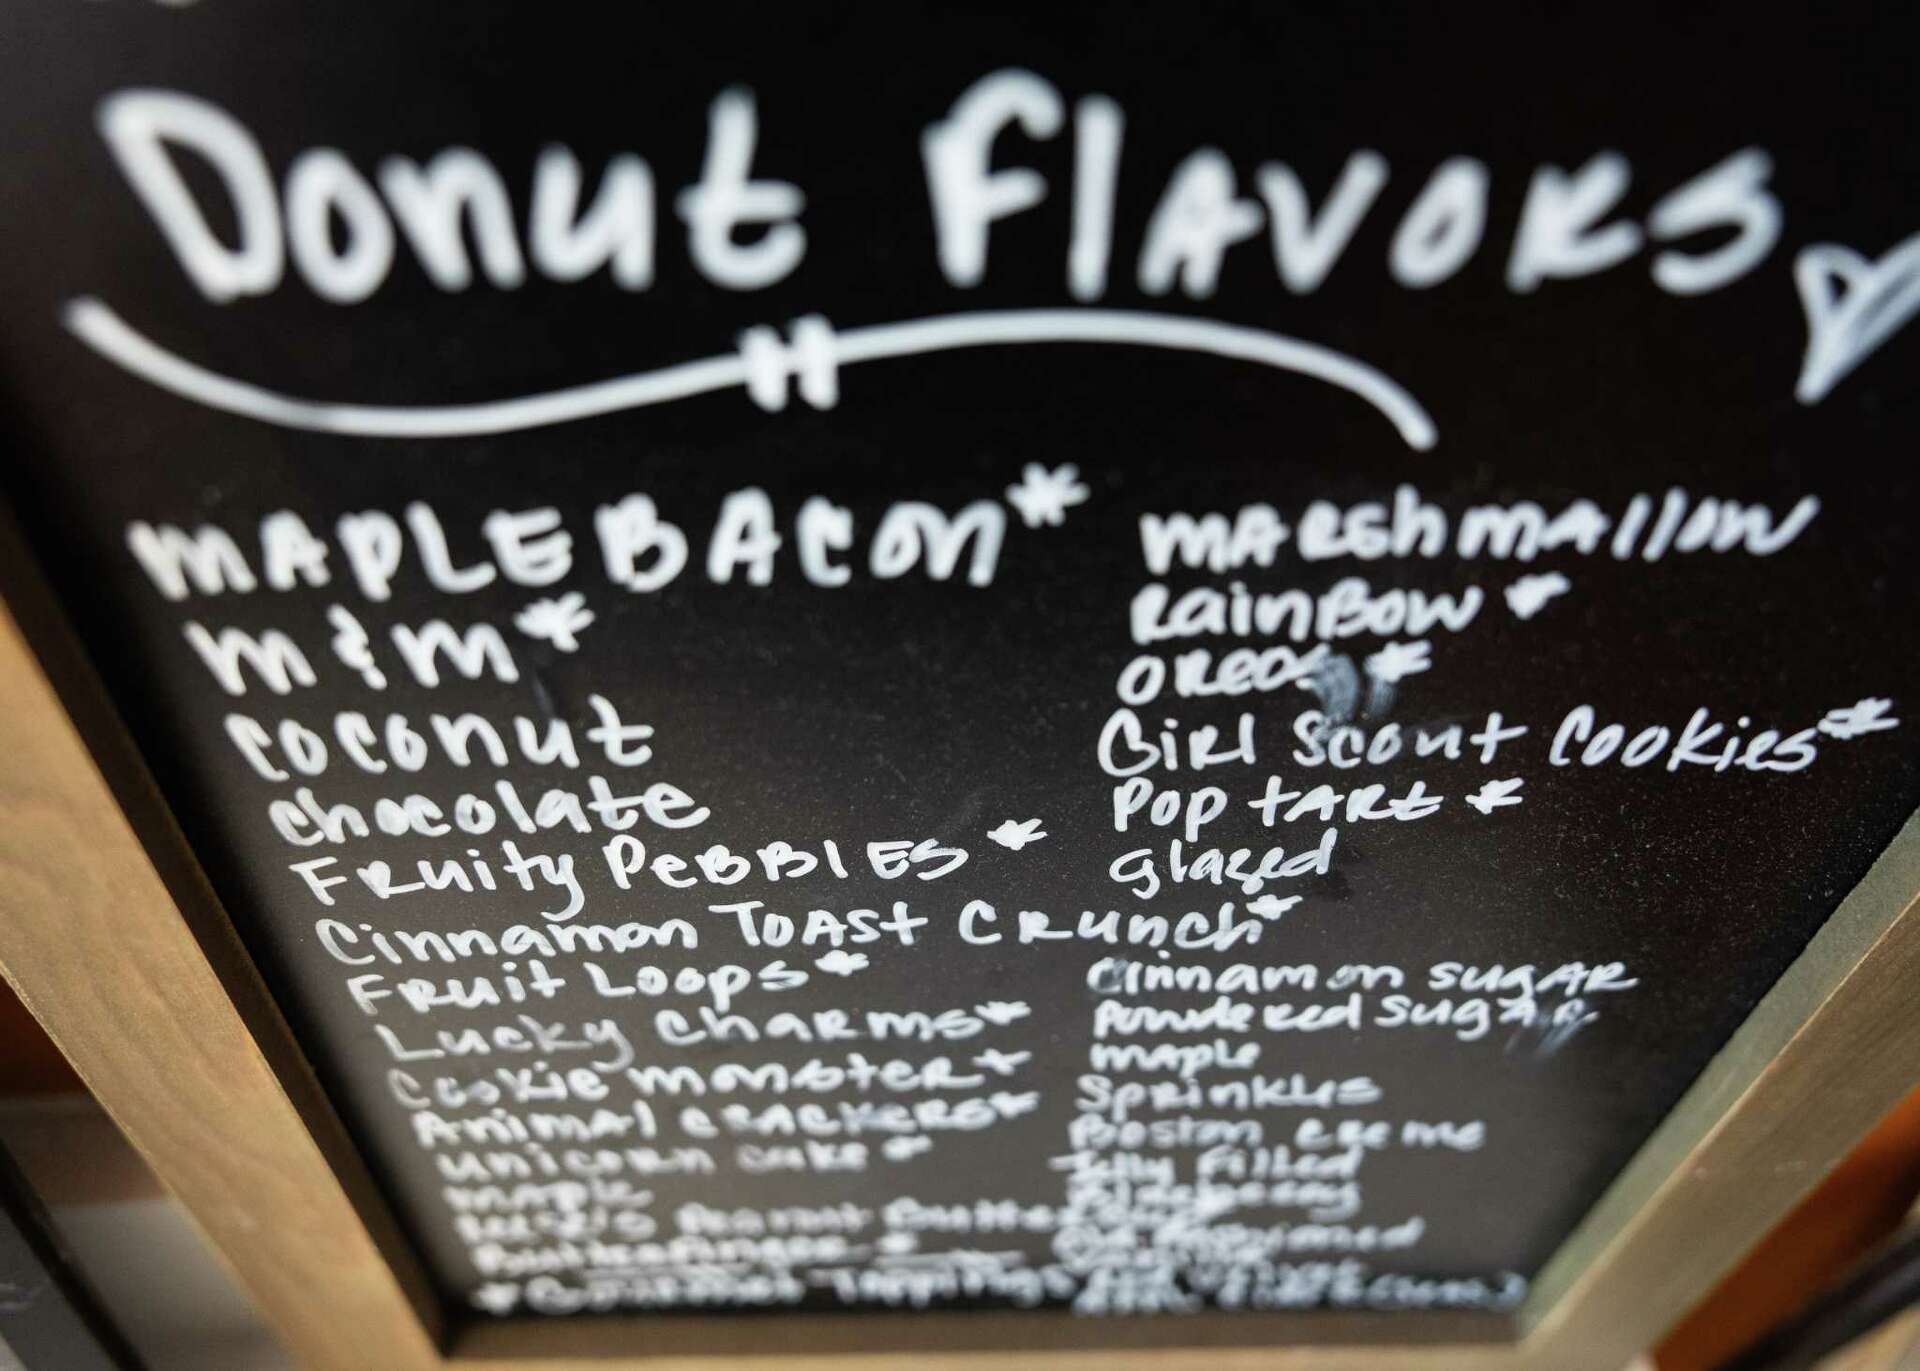 Donut Flavors
Maple Bacon*
M&M*
Coconut
Chocolate
Fruity Pebbles*
Cinnamon Toast Crunch*
Fruit Loops*
Lucky Charms*
Cookie Monster*
Animal Crackers*
Unicorn Cake*
Maple
Reese's Peanut Butter
Butterfinger*
*Gourmet Toppings
Marshmallow
Rainbow*
Oreo*
Girl Scout Cookies*
Pop Tart*
Glazed
Cinnamon Sugar
Powdered Sugar
Maple
Sprinkles
Boston Creme
Jelly Filled
Old Fashioned